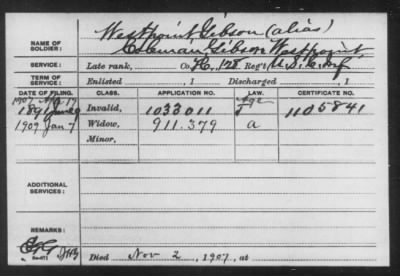 Westpoint, Gibson (alias)
NAME OF SOLDIER: Coleman, Gibson Westpoint
SERVICE: Late rank, Co. H, 128 Reg't U.S.C. Inf
TERM OF SERVICE: Enlisted , 1 Discharged , 1
DATE OF FILING. CLASS. APPLICATION NO. LAW. CERTIFICATE NO.
1907 17 Age
189 Invalid, 1033011 1105841
1907 Jan 7 Widow, 911.379 a
Minor,
ADDITIONAL SERVICES:
REMARKS:
Died Nov 2, 1907, at